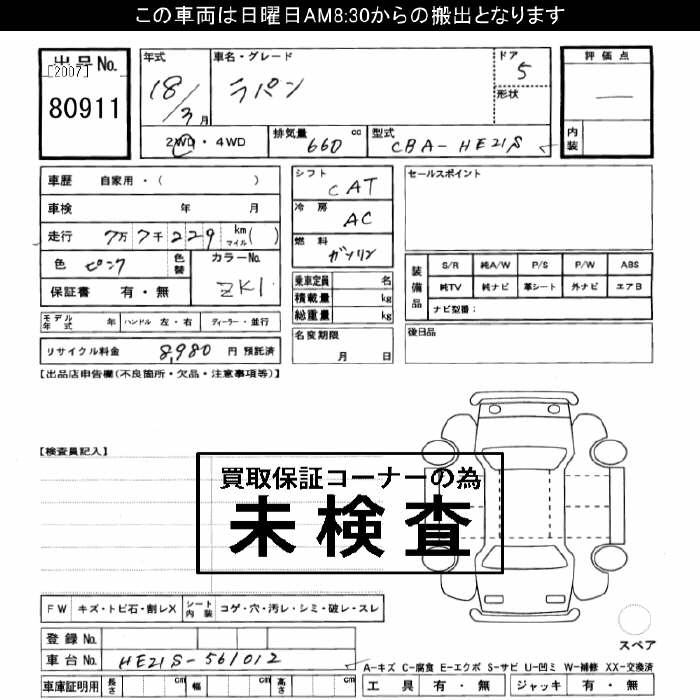 この車両は日曜日AM8:30からの搬出となります
出品No.
[2007]
80911
年式
18/3月
車名・グレード
ラパン
ドア
5
形状
評価点
—
内装
2WD・4WD
排気量
660 cc
型式
CBA-HE21S
車歴 自家用・( )
車検 年 月
走行 7万7千229 km マイル( )
色 ピンク 色替
カラーNo.
ZK1
保証書 有・無
シフト
CAT
冷房
AC
燃料
ガソリン
乗車定員 名
積載量 kg
総重量 kg
名変期限
月 日
セールスポイント
装備品
S/R 純A/W P/S P/W ABS
純TV 純ナビ 革シート 外ナビ エアB
ナビ型番:
後日品
モデル年式 年 ハンドル 左・右 ディーラー・並行
リサイクル料金 8,980 円 預託済
【出品店申告欄(不良箇所・欠品・注意事項等)】
【検査員記入】
買取保証コーナーの為
未検査
FW キズ・トビ石・割レX シート内装 コゲ・穴・汚レ・シミ・破レ・スレ
登録No.
車台No. HE21S-561012
車庫証明用 長さ cm 幅 cm 高さ cm
スペア
A-キズ C-腐食 E-エクボ S-サビ U-凹ミ W-補修 XX-交換済
工具 有・無 ジャッキ 有・無